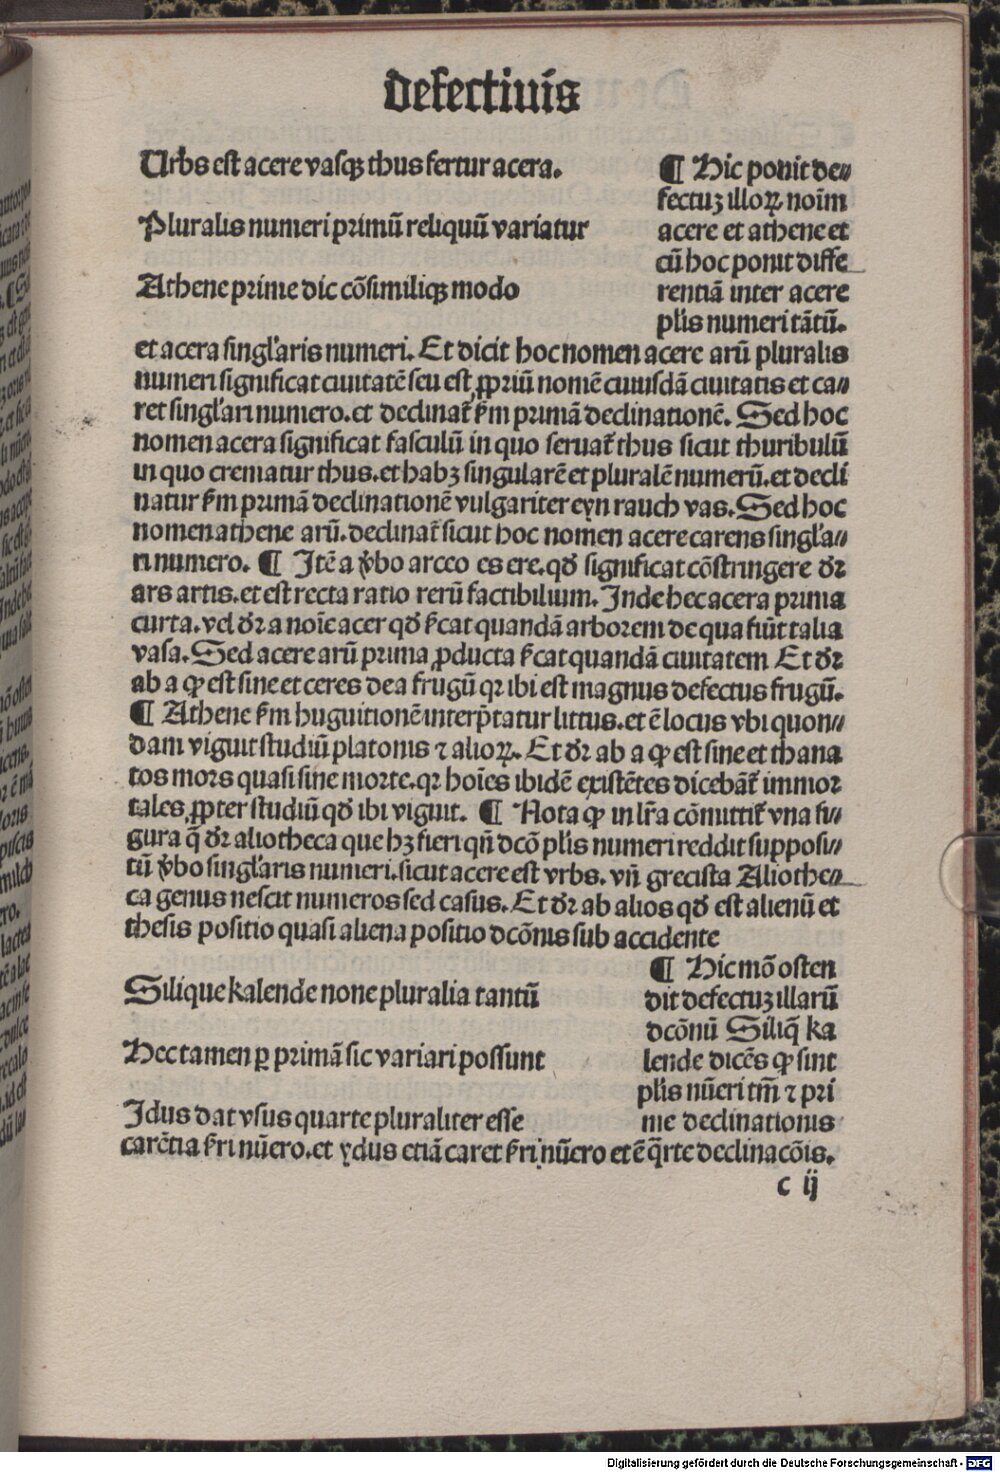 defectiuis
Urbs est acere vasqꝫ thus fertur acera.
Pluralis numeri primū reliquū variatur
Athene prime dic cōsimiliqꝫ modo
¶ Hic ponit de⸗
fectuꝫ illoꝝ noīm
acere et athene et
cū hoc ponit diffe
rentiā inter acere
plis numeri tātū.
et acera singl'aris numeri. Et dicit hoc nomen acere arū pluralis
numeri significat ciuitatē seu est ꝓpriū nomē cuiusdā ciuitatis et ca⸗
ret singl'ari numero. et declinat᷑ ẜm primā declinationē. Sed hoc
nomen acera significat fasculū in quo seruat᷑ thus sicut thuribulū
in quo crematur thus. et habꝫ singularē et pluralē numerū. et decli
natur ẜm primā declinationē vulgariter eyn rauch vas. Sed hoc
nomen athene arū. declinat᷑ sicut hoc nomen acere carens singl'a⸗
ri numero. ¶ Itē a v̓bo arceo es ere. qd̓ significat cōstringere dr̄
ars artis. et est recta ratio rerū factibilium. Inde hec acera prima
curta. vel dr̄ a noīe acer qd̓ ẜcat quandā arborem de qua fiūt talia
vasa. Sed acere arū prima ꝓducta ẜcat quandā ciuitatem Et dr̄
ab a ꝙ est sine et ceres dea frugū qꝛ ibi est magnus defectus frugū.
¶ Athene ẜm huguitionē interp̄tatur littus. et ē locus vbi quon⸗
dam viguit studiū platonis ⁊ alioꝝ. Et dr̄ ab a ꝙ est sine et thana
tos mors quasi sine morte. qꝛ hoīes ibidē existētes dicebāt᷑ immor
tales ꝓpter studiū qd̓ ibi viguit. ¶ Nota ꝙ in lr̄a cōmittit᷑ vna fi⸗
gura q̄ dr̄ aliotheca que hꝫ fieri qn̄ dcō plis numeri reddit supposi⸗
tū v̓bo singl'aris numeri. sicut acere est vrbs. vn̄ grecista Aliothe
ca genus nescit numeros sed casus. Et dr̄ ab alios qd̓ est alienū et
thesis positio quasi aliena positio dcōnis sub accidente
Silique kalende none pluralia tantū
Hec tamen ꝑ primā sic variari possunt
Idus dat vsus quarte pluraliter esse
¶ Hic mō osten
dit defectuꝫ illarū
dcōnū Siliq̄ ka
lende dicēs ꝙ sint
plis nūeri tm̄ ⁊ pri
me declinationis
carētia ẜri nūero. et ydus etiā caret ẜri nūero et ē q̄rte declinacōis.
c ij
Digitalisierung gefördert durch die Deutsche Forschungsgemeinschaft - DFG